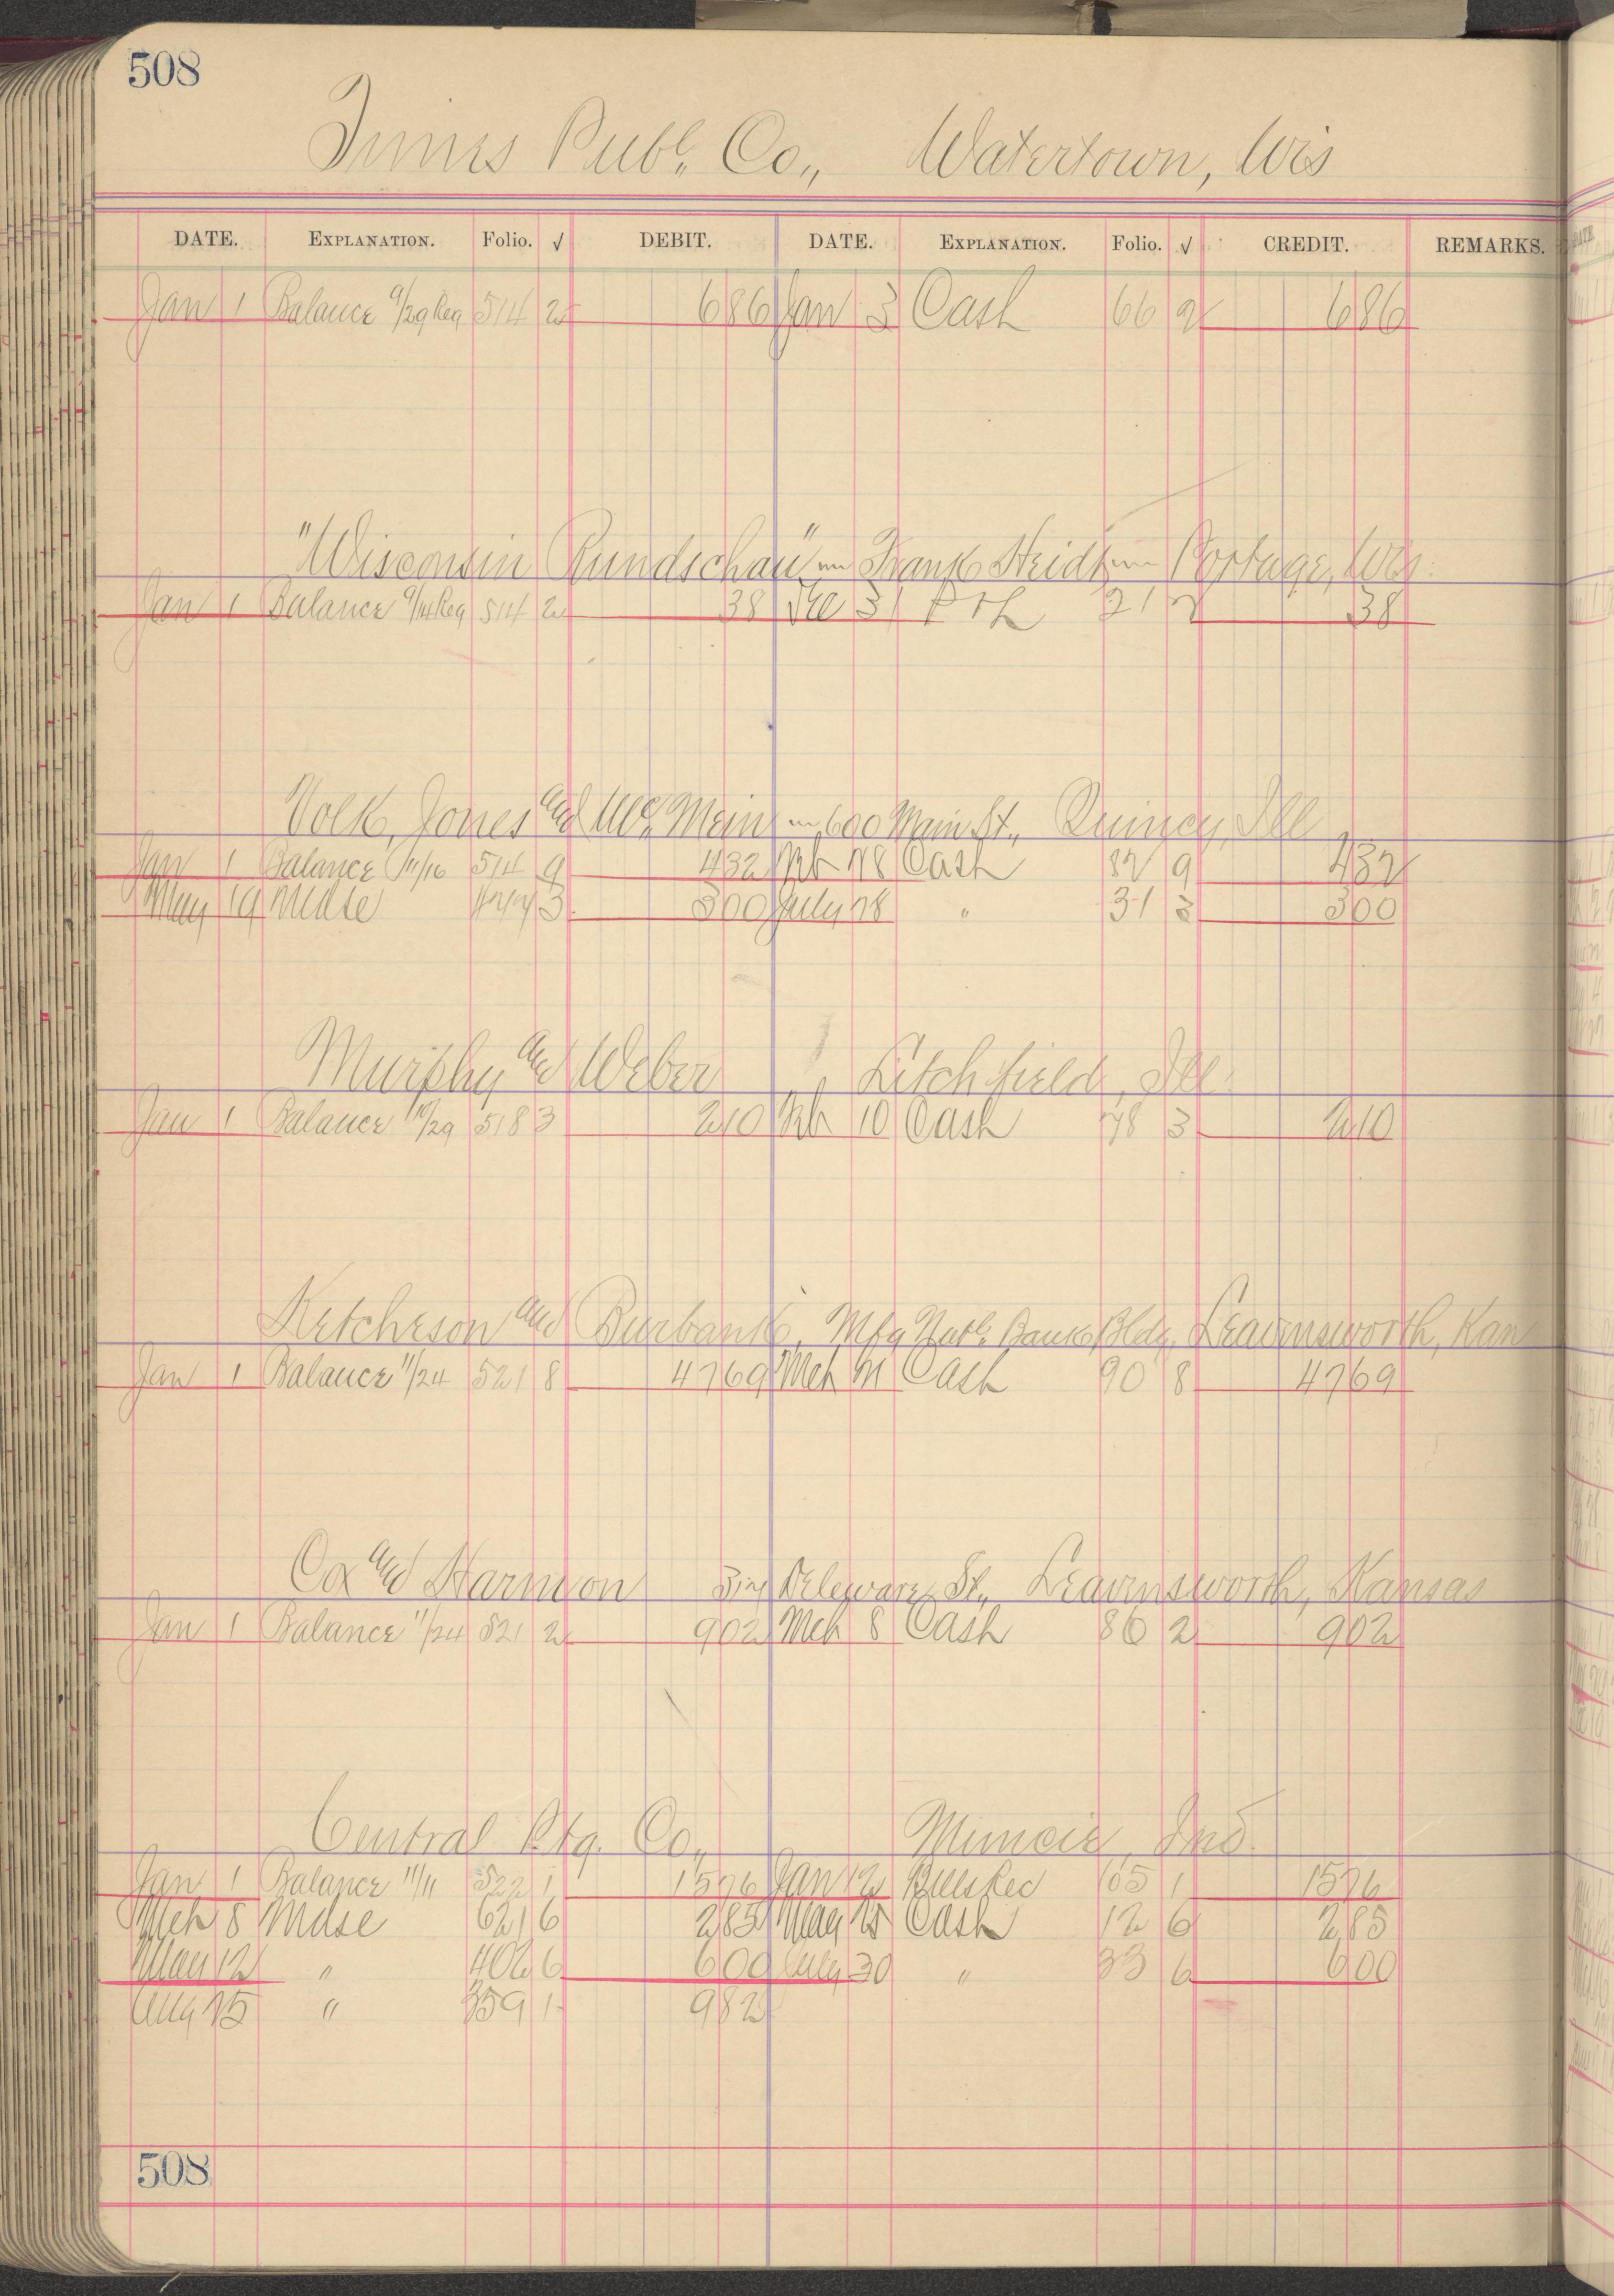 508
Times Publ. Co., Watertown, Wis
DATE. EXPLANATION. Folio. √ DEBIT. DATE. EXPLANATION. Folio. √ CREDIT. REMARKS.
Jan 1 Balance 9/29 Reg 514 2 686 Jan 3 Cash 66 2 686
"Wisconsin Rundschau" Frank Heidt Portage, Wis.
Jan 1 Balance 9/14 Reg 514 2 38 Dec 31 P & L 21 2 38
Volk, Jones and Mc Mein 600 Main St., Quincy, Ill
Jan 1 Balance 514 9 432 Feb 18 Cash 82 9 432
May 19 Mdse 3 300 July 28 " 31 3 300
Murphy and Weber Litchfield, Ill.
Jan 1 Balance 10/29 518 3 210 Feb 10 Cash 78 3 210
Ketcheson and Burbank, Mfg Natl. Bank Bldg, Leavensworth, Kan
Jan 1 Balance 11/24 521 8 4769 Mch Cash 90 8 4769
Cox and Harmon Deleware St., Leavensworth, Kansas
Jan 1 Balance 11/24 521 2 902 Mch 8 Cash 86 2 902
Central Ptg. Co., Muncie, Ind.
Jan 1 Balance 11/11 522 1 1576 Jan 12 Bills Rec 105 1 1576
Mch 8 Mdse 621 6 285 May 25 Cash 12 6 285
May 12 " 402 6 600 July 30 " 33 6 600
Aug 25 " 359 1 982
508